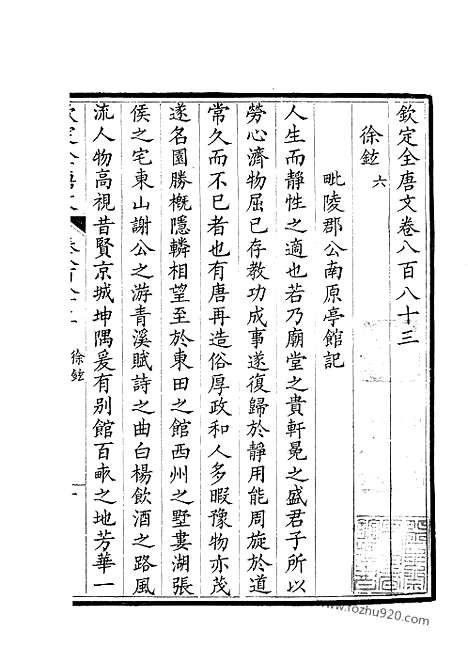 欽定全唐文卷八百八十三
徐鉉 六
毗陵郡公南原亭館記
人生而靜性之適也若乃廟堂之貴軒冕之盛君子所以
勞心濟物屈已存教功成事遂復歸於靜用能周旋於道
常久而不已者也有唐再造俗厚政和人多暇豫物亦茂
遂名園勝概隱轔相望至於東田之館西州之墅婁湖張
侯之宅東山謝公之游青溪賦詩之曲白楊飲酒之路風
流人物高視昔賢京城坤隅爰有別館百畝之地芳華一
徐鉉
www.fozhu920.com